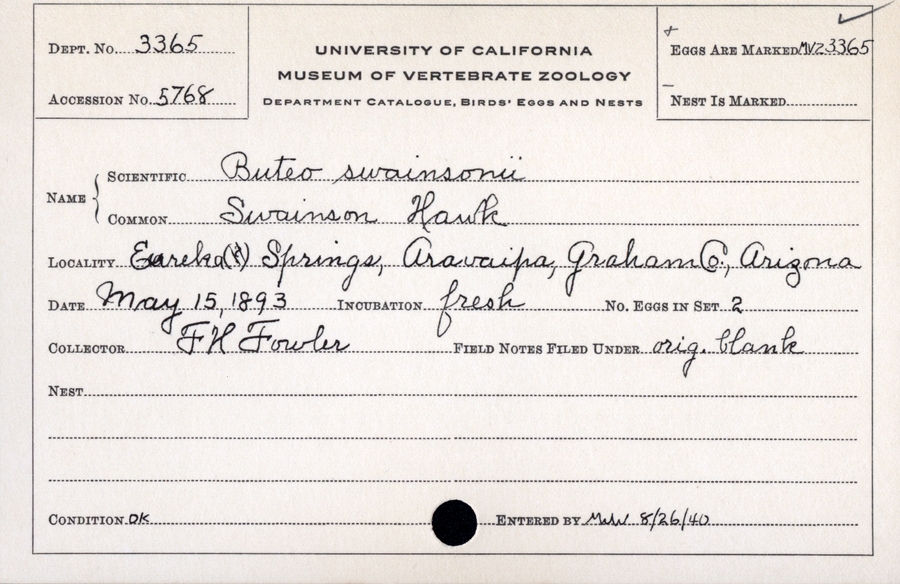 DEPT. No. 3365
ACCESSION No. 5768
UNIVERSITY OF CALIFORNIA
MUSEUM OF VERTEBRATE ZOOLOGY
DEPARTMENT CATALOGUE, BIRDS' EGGS AND NESTS
+
EGGS ARE MARKED MVZ3365
–
NEST IS MARKED
NAME
SCIENTIFIC Buteo swainsonii
COMMON Swainson Hawk
LOCALITY Eureka(?) Springs, Aravaipa, Graham Co., Arizona
DATE May 15, 1893 INCUBATION fresh No. EGGS IN SET 2
COLLECTOR FH Fowler FIELD NOTES FILED UNDER orig. blank
NEST
CONDITION OK ENTERED BY 8/26/40